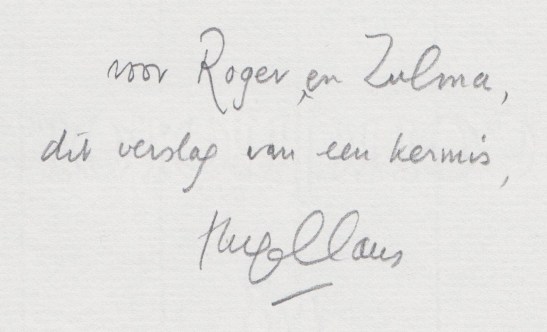 voor Roger, en Zulma,
dit verslag van een kermis,
Hugo Claus